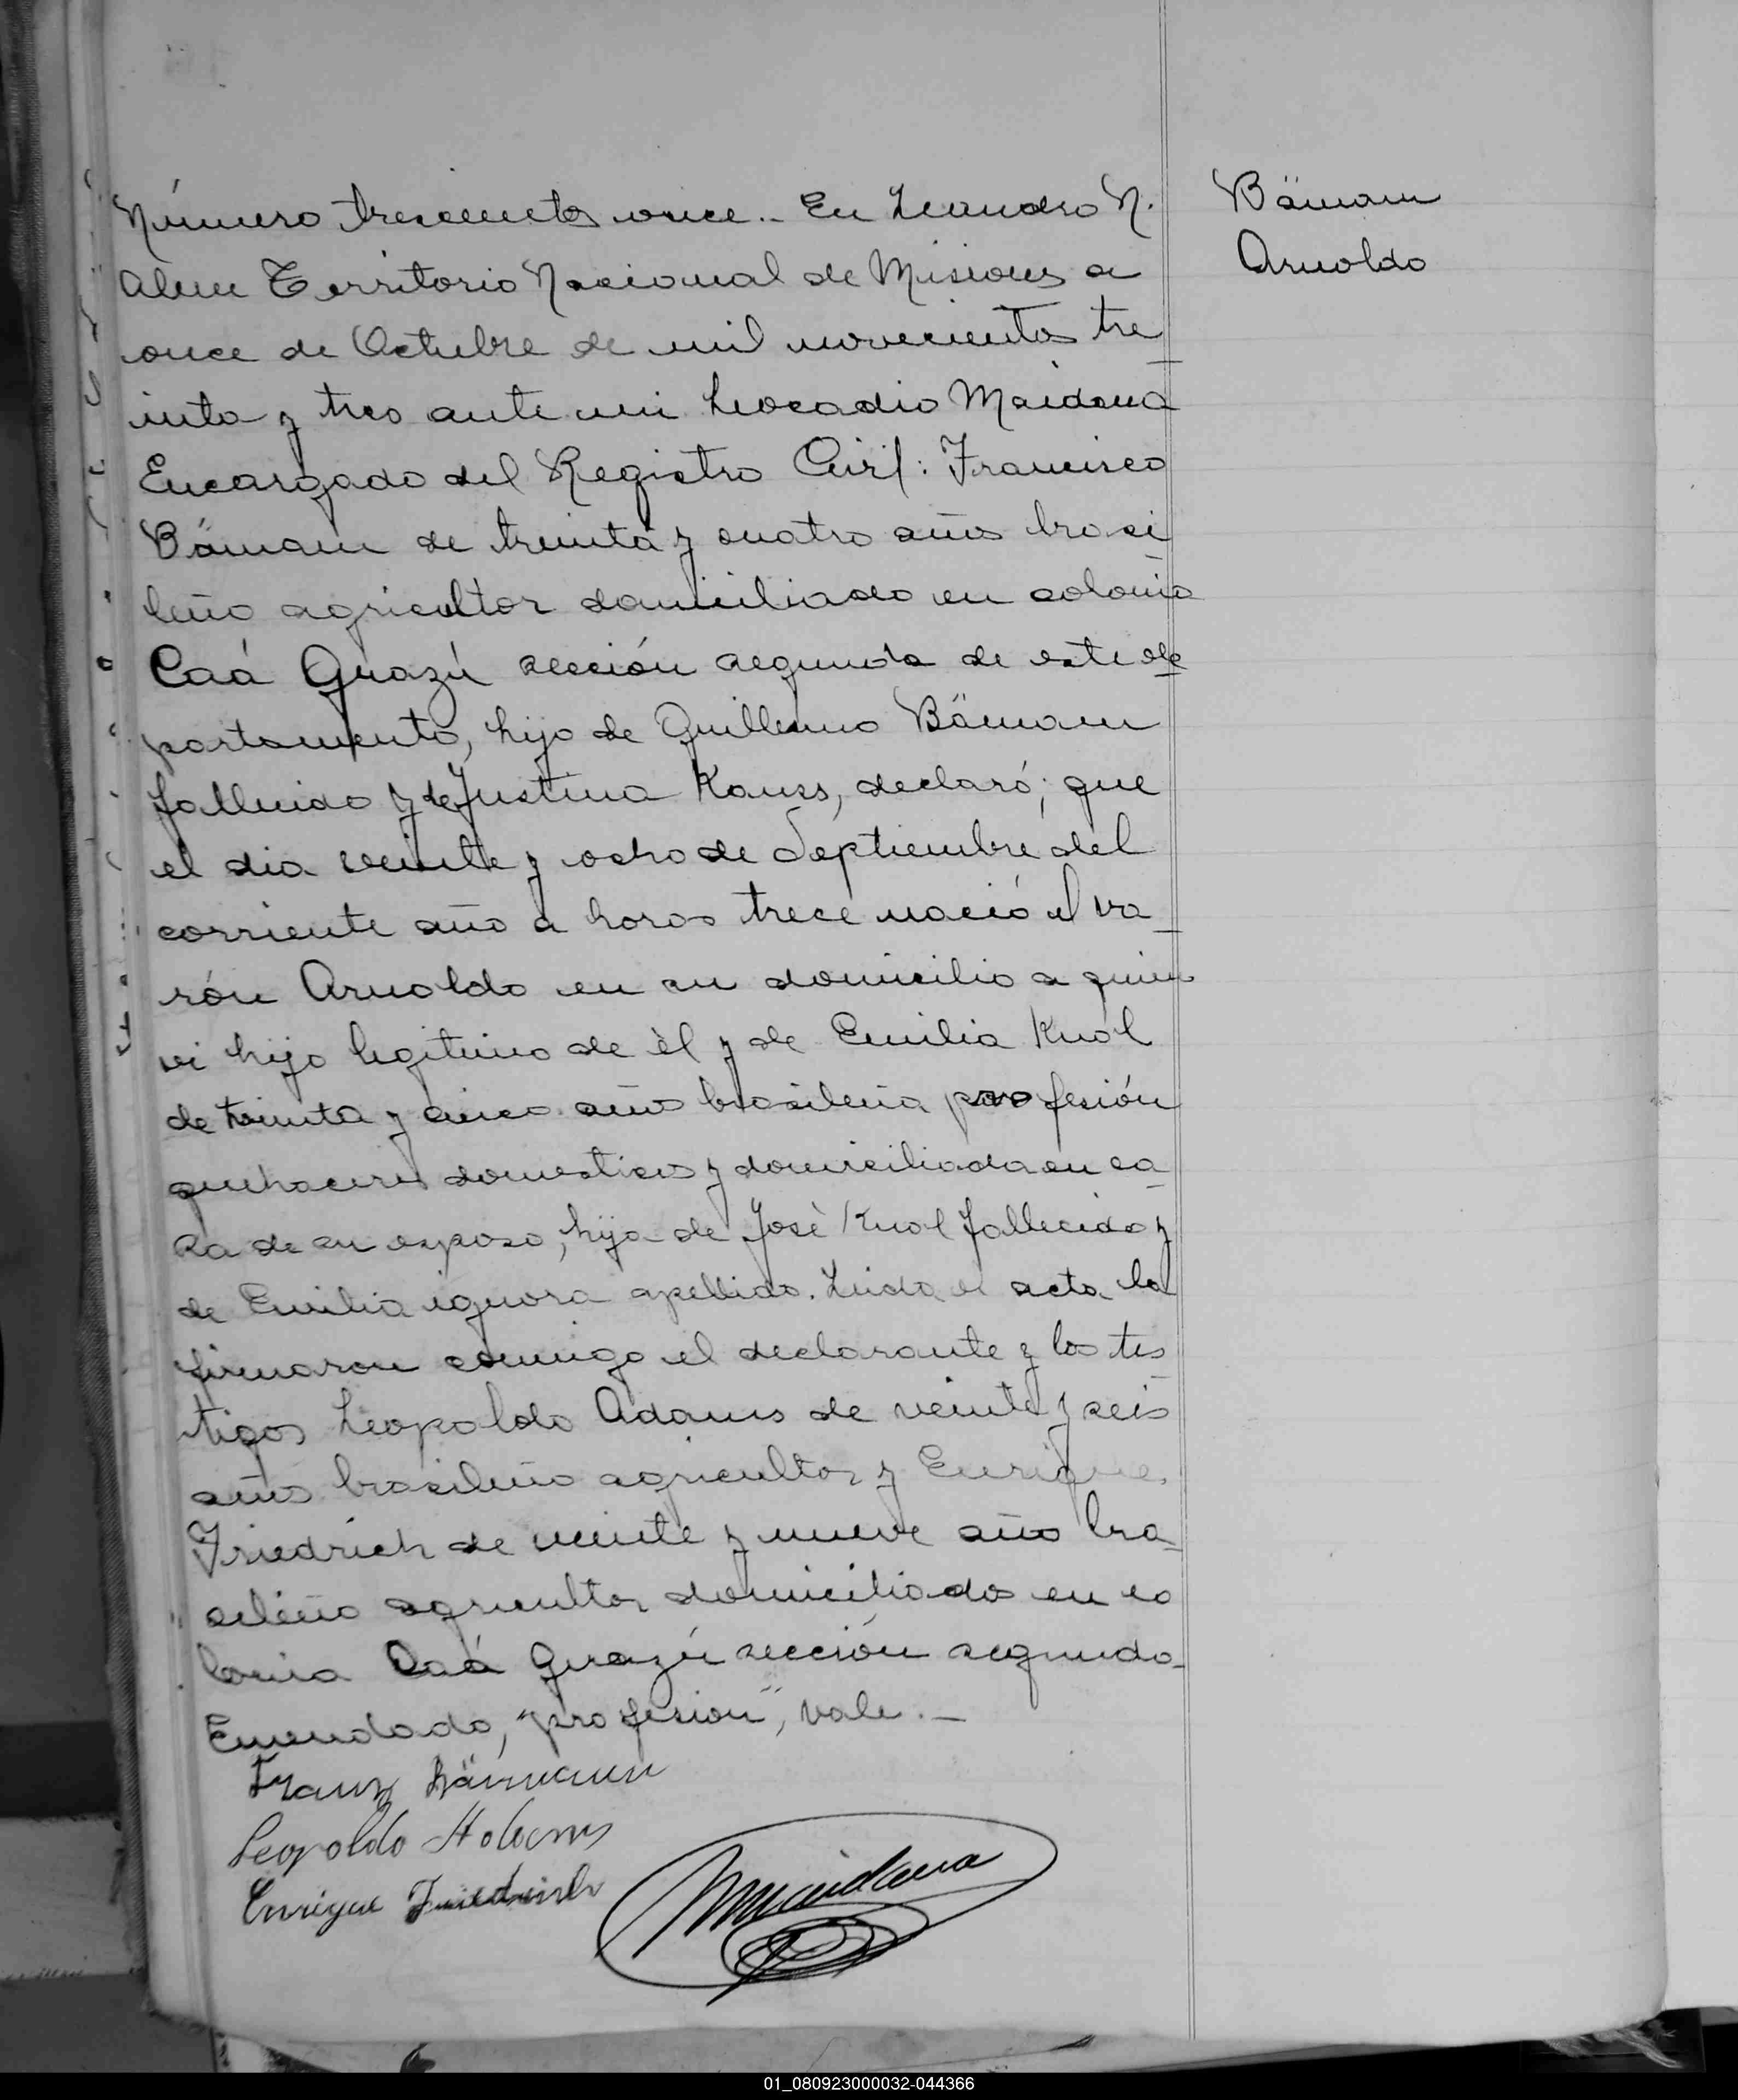 Número trescientos once.- En Leandro N.
Alem Territorio Nacional de Misiones a
once de Octubre de mil novecientos tre
inta y tres ante mi Leocadio Maidana
Encargado del Registro Civil: Francisco
Bämann de treinta y cuatro años brasi
leño agricultor domiciliado en colonia
Caá Guazú sección segunda de este de
partamento, hijo de Guillermo Bämann
fallecido y de Justina Kauss, declaró; que
el dia veinte y ocho de Septiembre del
corriente año a horas trece nació el va
rón Arnoldo en su domicilio a quien
vi hijo legitimo de èl y de Emilia Knol
de treinta y cinco años brasileña profesión
quehaceres domesticos y domiciliada en ca
sa de su esposo, hija de Josè Knol fallecido y
de Emilia ignora apellido. Leida el acta la
firmaron conmigo el declarante y los tes
tigos Leopoldo Adams de veinte y seis
años brasileño agricultor y Enrique
Friedrich de veinte y nueve años bra
sileño agricultor domiciliados en co
lonia Caá Guazú sección segunda
Emendado, "profesion", vale.-
Franz Bämann
Leopoldo Adams
Enrique Friedrich
Maidana
Bämann
Arnoldo
01_080923000032-044366